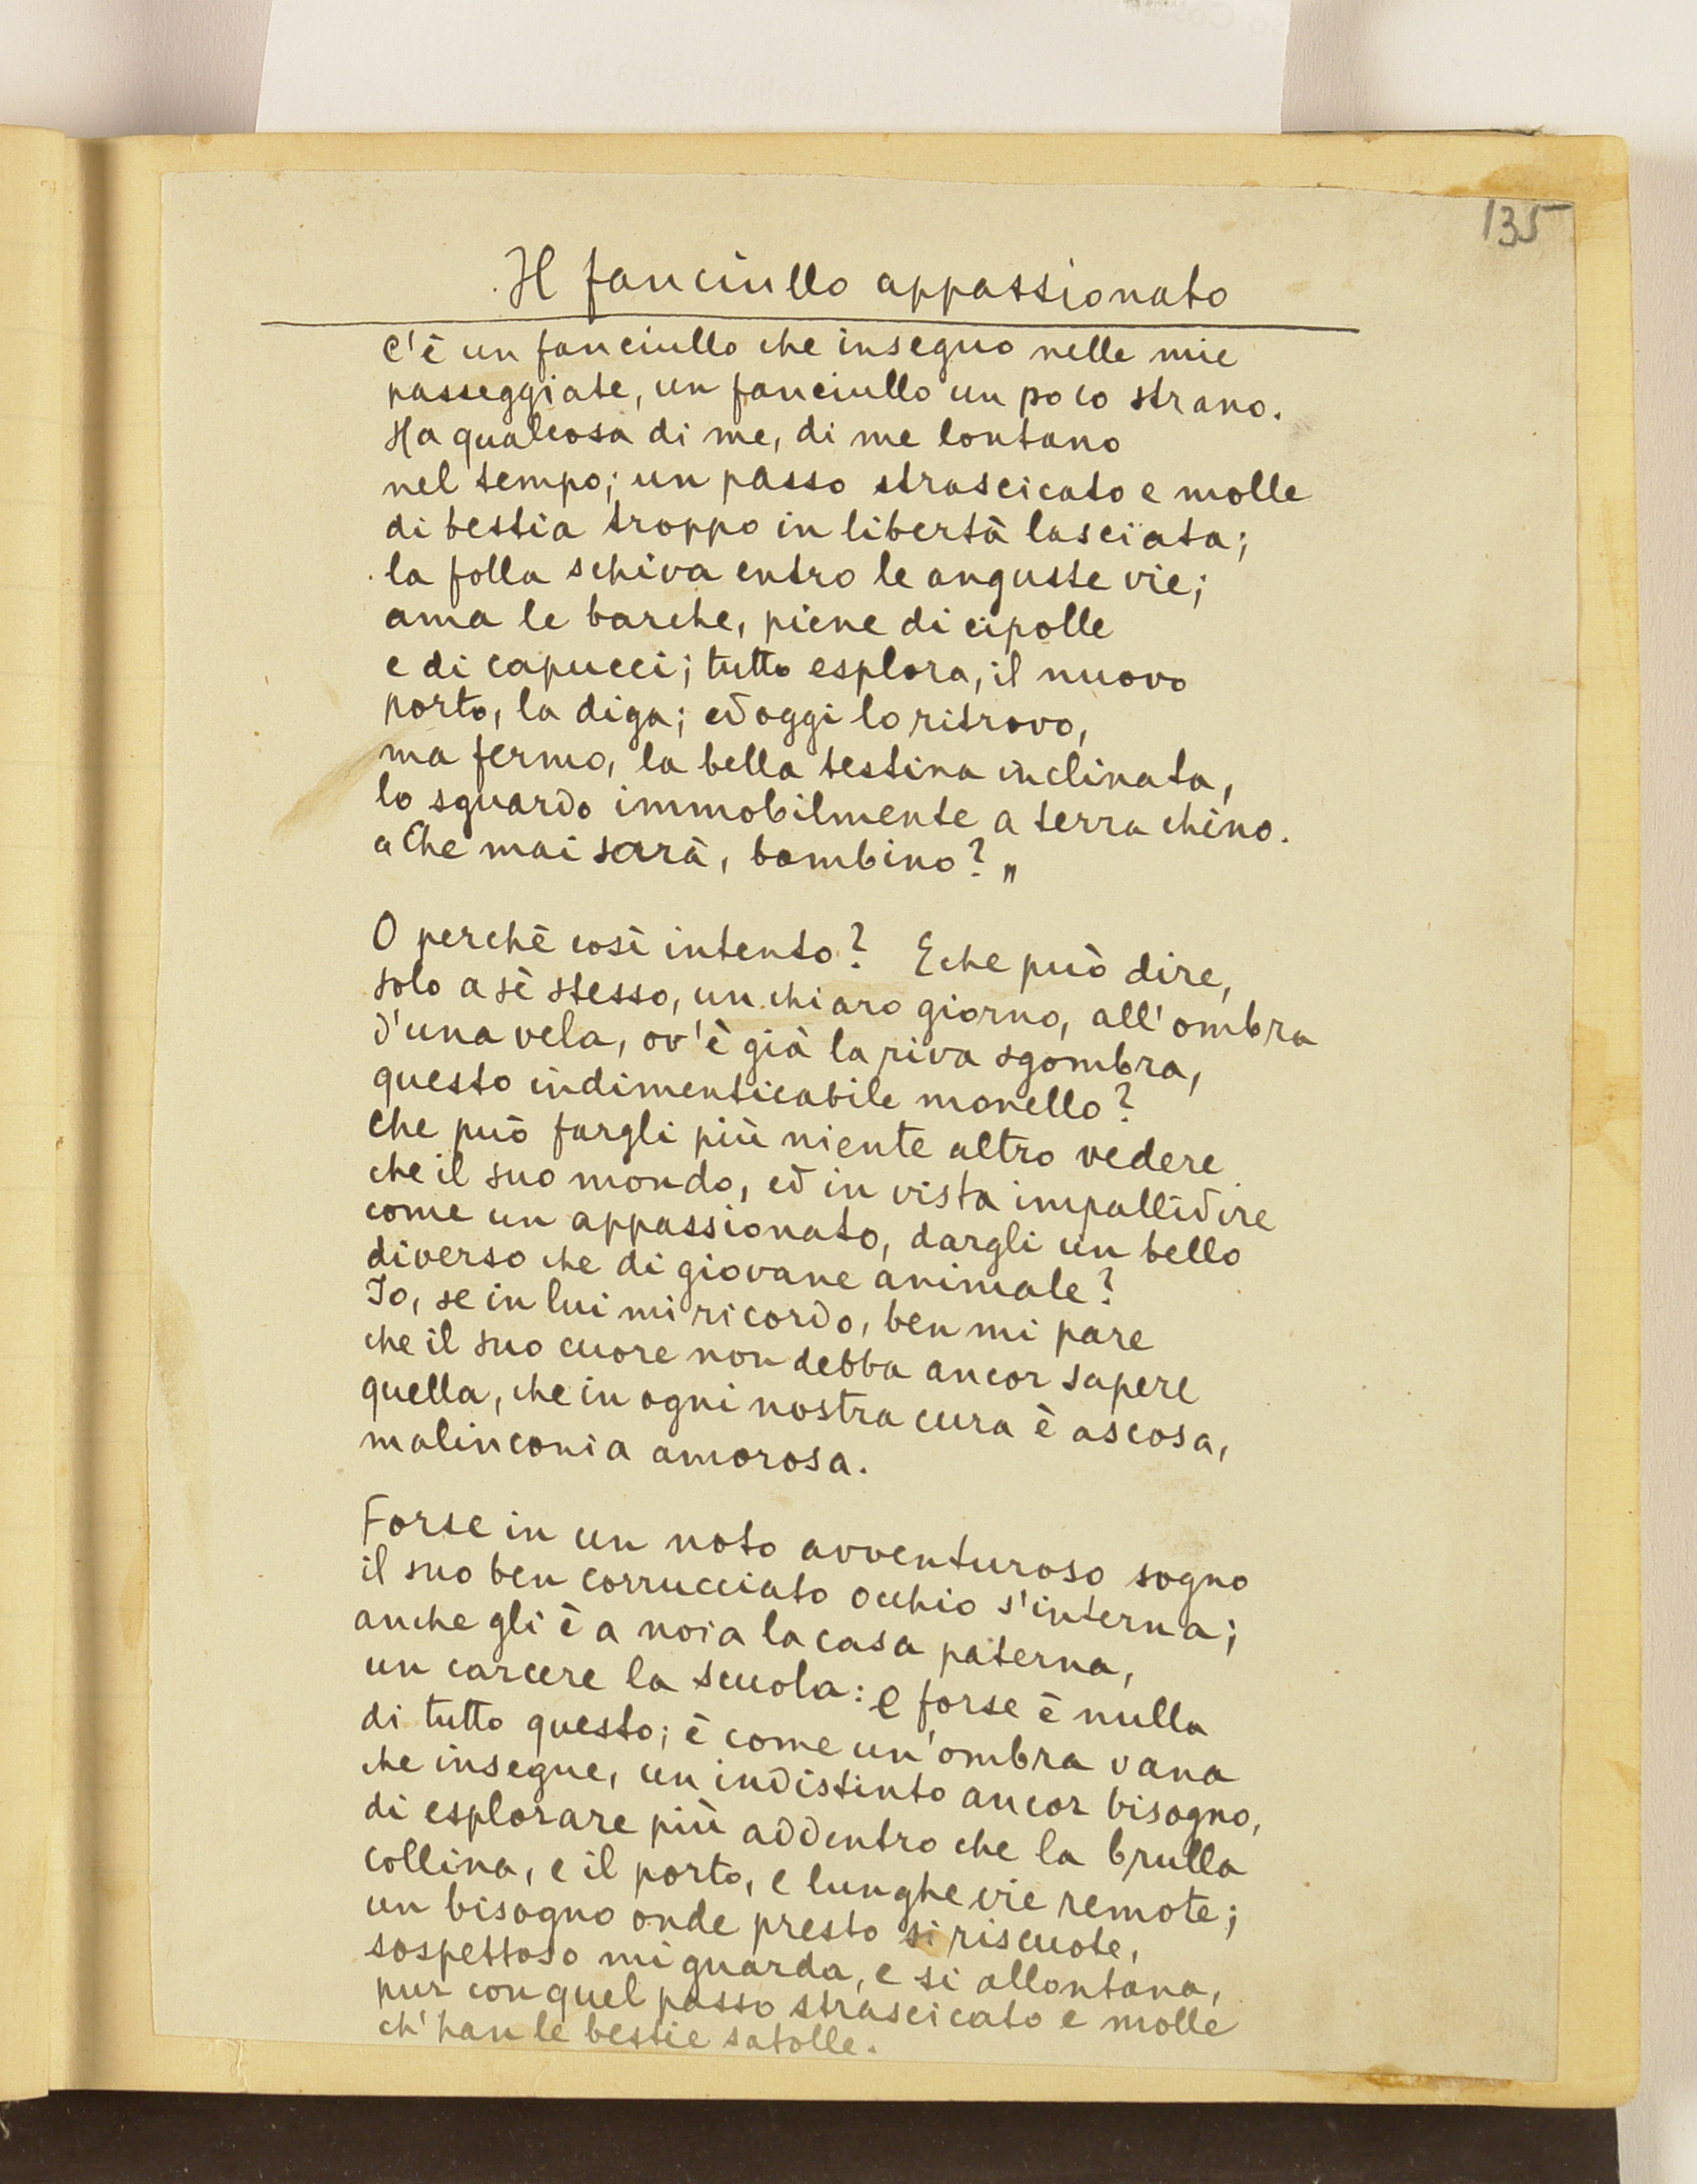 135
Il fanciullo appassionato
C'è un fanciullo che inseguo nelle mie
passeggiate, un fanciullo un poco strano.
Ha qualcosa di me, di me lontano
nel tempo; un passo strascicato e molle
di bestia troppo in libertà lasciata;
la folla schiva entro le anguste vie;
ama le barche, piene di cipolle
e di capucci; tutto esplora, il nuovo
porto, la diga; ed oggi lo ritrovo,
ma fermo, la bella testina inclinata,
lo sguardo immobilmente a terra chino.
"Che mai sarà, bambino?"
O perchè così intento? E che può dire,
solo a sè stesso, un chiaro giorno, all'ombra
d'una vela, ov'è già la riva sgombra,
questo indimenticabile monello?
Che può fargli più niente altro vedere
che il suo mondo, ed in vista impallidire
come un appassionato, dargli un bello
diverso che di giovane animale?
Io, se in lui mi ricordo, ben mi pare
che il suo cuore non debba ancor sapere
quella, che in ogni nostra cura è ascosa,
malinconia amorosa.
Forse in un noto avventuroso sogno
il suo ben corrucciato occhio s'interna;
anche gli è a noia la casa paterna,
un carcere la scuola: e forse è nulla
di tutto questo; è come un'ombra vana
che insegue, un indistinto ancor bisogno,
di esplorare più addentro che la brulla
collina, e il porto, e lunghe vie remote;
un bisogno onde presto si riscuote,
sospettoso mi guarda, e si allontana,
pur con quel passo strascicato e molle
ch'han le bestie satolle.